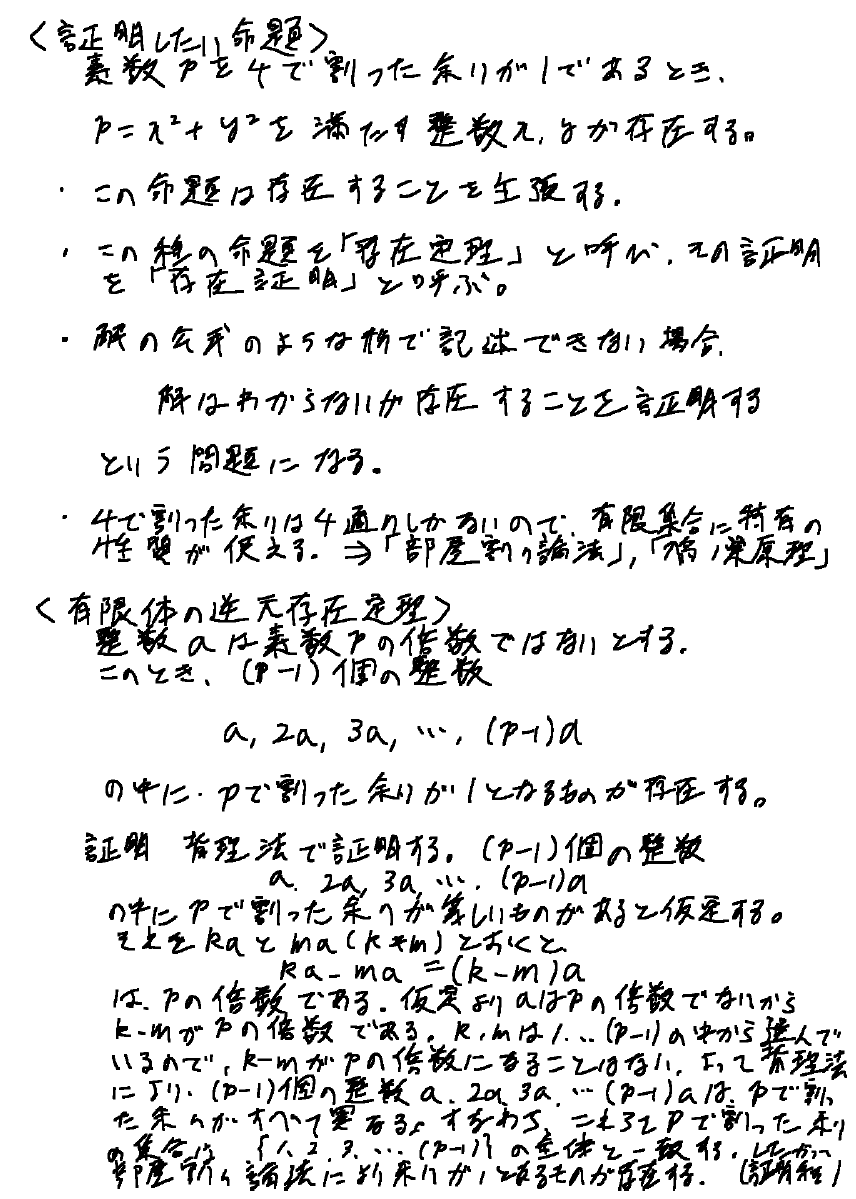 〈証明したい命題〉
素数pを4で割った余りが1であるとき、
p=x²+y²を満たす整数x,yが存在する。
・この命題は存在することを主張する。
・この種の命題を「存在定理」と呼び、その証明
を「存在証明」と呼ぶ。
・解の公式のような形で記述できない場合、
解はわからないが存在することを証明する
という問題になる。
・4で割った余りは4通りしかないので、有限集合に特有の
性質が使える。⇒「部屋割り論法」,「鳩ノ巣原理」
〈有限体の逆元存在定理〉
整数aは素数pの倍数ではないとする。
このとき、(p-1)個の整数
a, 2a, 3a, …, (p-1)a
の中に、pで割った余りが1となるものが存在する。
証明 背理法で証明する。(p-1)個の整数
a, 2a, 3a, …, (p-1)a
の中にpで割った余りが等しいものがあると仮定する。
それをkaとma(k≠m)とおくと、
ka-ma=(k-m)a
は、pの倍数である。仮定よりaはpの倍数でないから
k-mがpの倍数である。k,mは1,…(p-1)の中から選んで
いるので、k-mがpの倍数になることはない。よって背理法
により、(p-1)個の整数a, 2a, 3a, …(p-1)aは、pで割っ
た余りがすべて異なる。すなわち、これらをpで割った余り
の集合は {1, 2, 3, …(p-1)}の全体と一致する。したがって
部屋割り論法により余りが1となるものが存在する。(証明終)